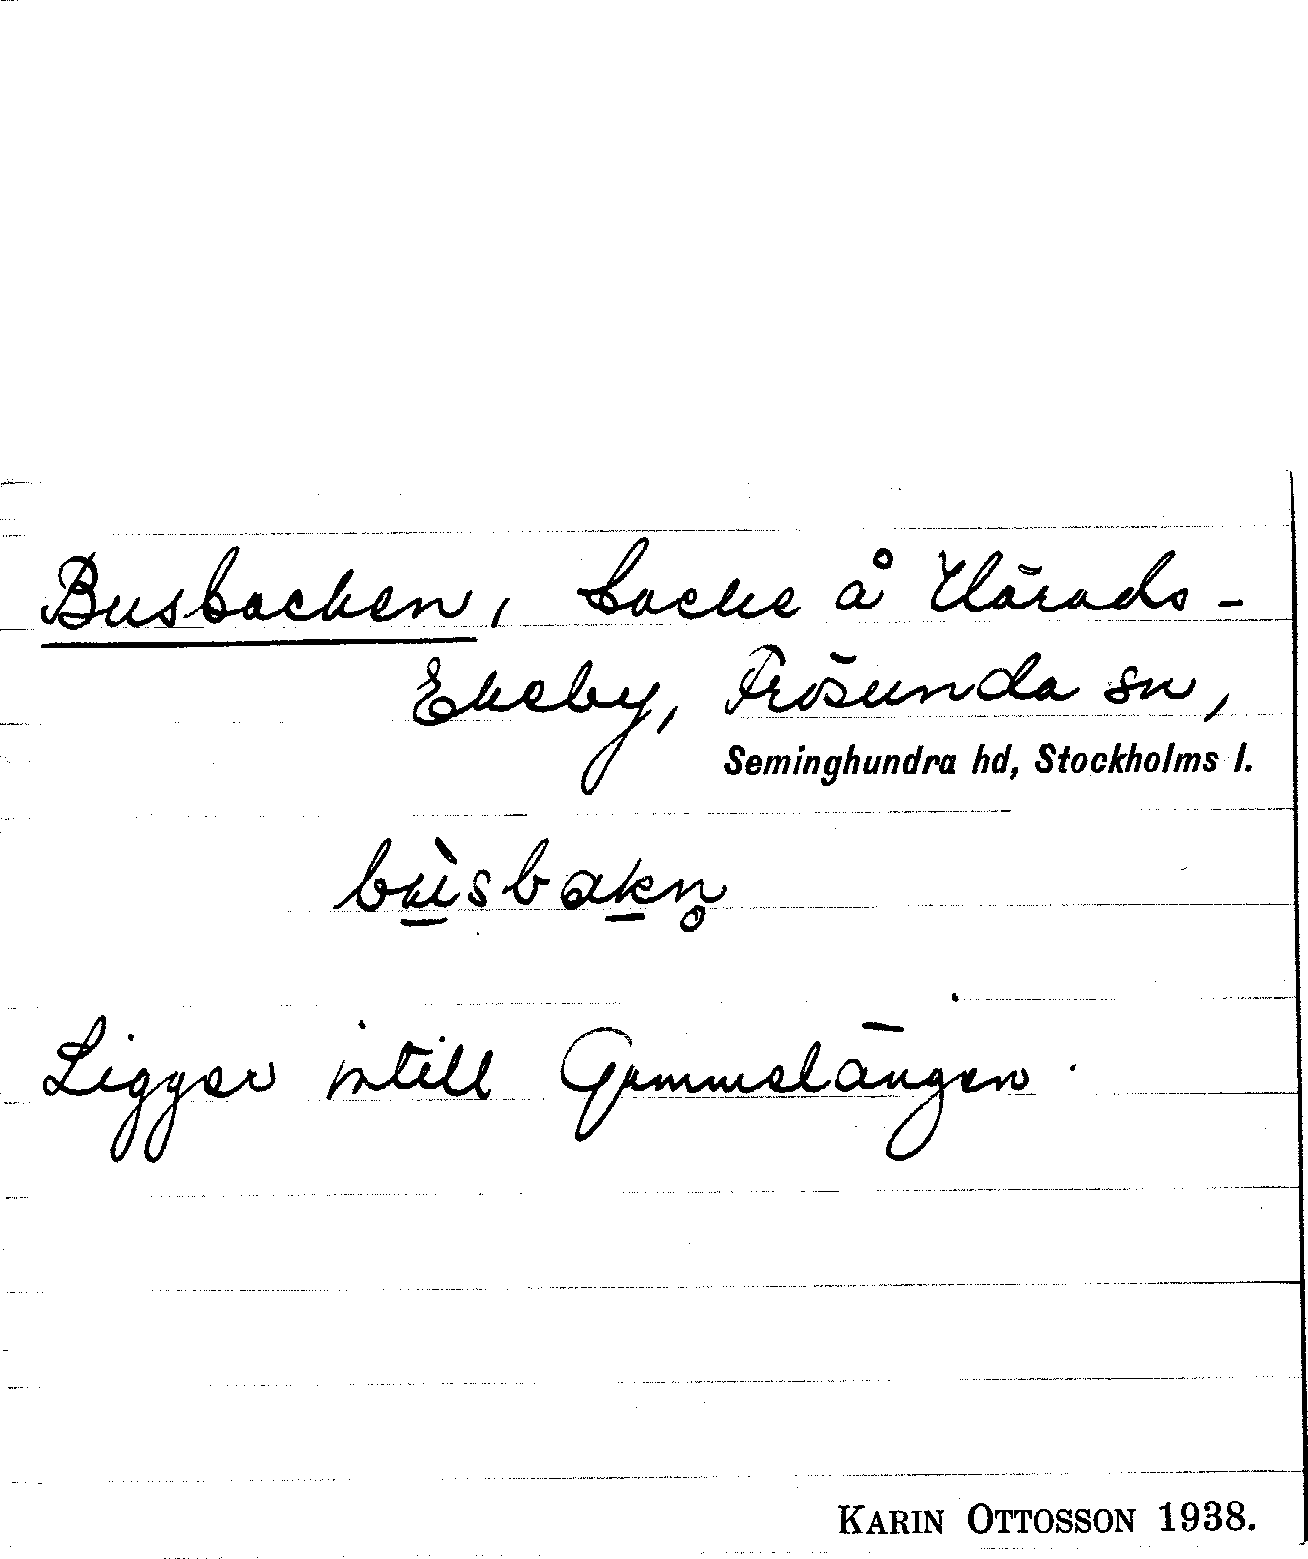 Busbacken, backe å Härads-
Ekeby, Frösunda sn,
Seminghundra hd, Stockholms l.
bù̱sbaḵn̥
Ligger intill Gammelängen.
KARIN OTTOSSON 1938.